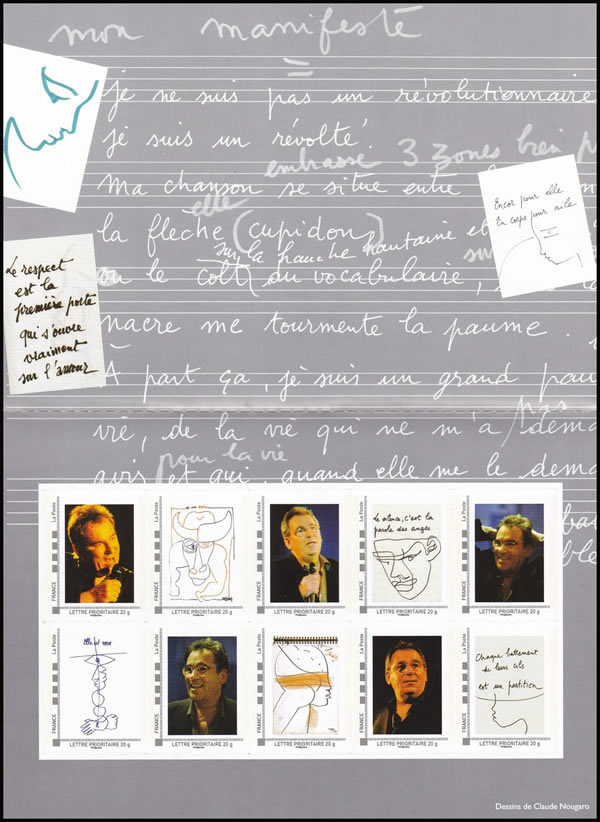 mon manifeste
je ne suis pas un révolutionnaire
je suis un révolté.
embrasse 3 zones bien
Ma chanson se situe entre
elle
la flèche (cupidon)
sur la hanche hautaine
ou le colt du vocabulaire,
nacre me tourmente la paume.
À part ça, je suis un grand
pas
vie, de la vie qui ne m'a
pour la vie
avis et qui, quand elle me le
Encor pour elle
En corps pour aile
Le respect
est la
première porte
qui s'ouvre
vraiment
sur l'amour
La Poste
FRANCE
LETTRE PRIORITAIRE 20 g
La Poste
FRANCE
LETTRE PRIORITAIRE 20 g
La Poste
FRANCE
LETTRE PRIORITAIRE 20 g
Le silence, c'est la
parole des anges
La Poste
FRANCE
LETTRE PRIORITAIRE 20 g
La Poste
FRANCE
LETTRE PRIORITAIRE 20 g
elle et moi
La Poste
FRANCE
LETTRE PRIORITAIRE 20 g
La Poste
FRANCE
LETTRE PRIORITAIRE 20 g
La Poste
FRANCE
LETTRE PRIORITAIRE 20 g
La Poste
FRANCE
LETTRE PRIORITAIRE 20 g
Chaque battement
de leurs cils
est une partition
La Poste
FRANCE
LETTRE PRIORITAIRE 20 g
Dessins de Claude Nougaro